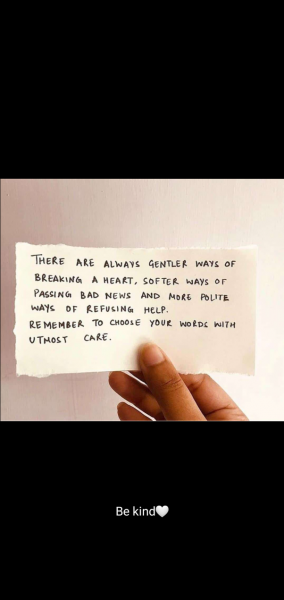 THERE ARE ALWAYS GENTLER WAYS OF
BREAKING A HEART, SOFTER WAYS OF
PASSING BAD NEWS AND MORE POLITE
WAYS OF REFUSING HELP.
REMEMBER TO CHOOSE YOUR WORDS WITH
UTMOST CARE.
Be kind🤍